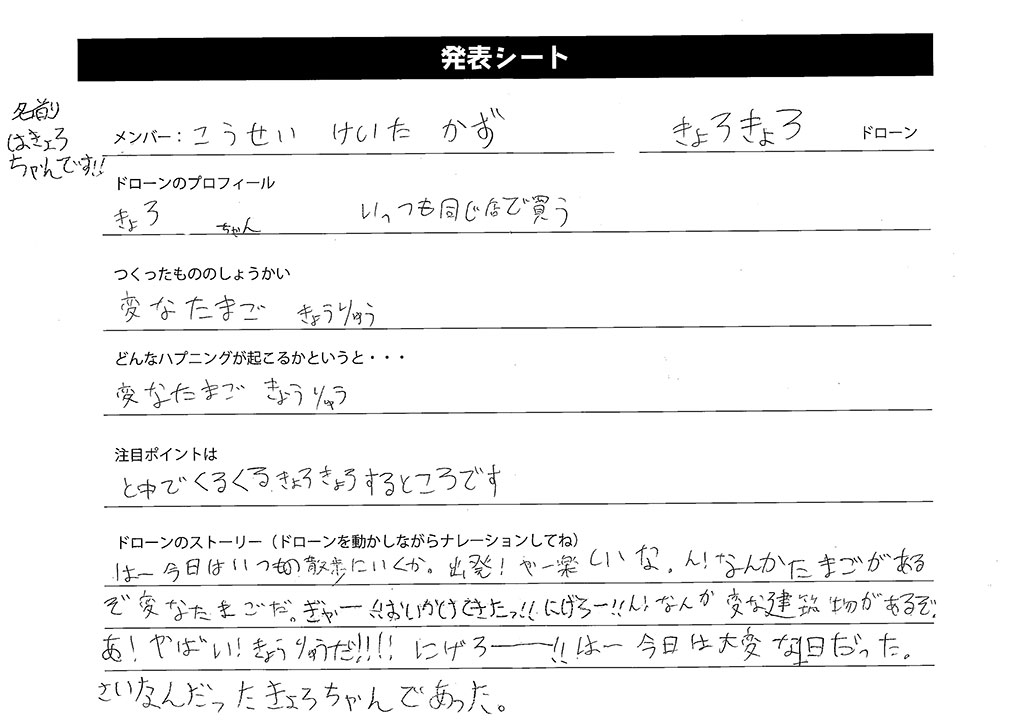 発表シート
名前
はきょろ
ちゃんです!!
メンバー：こうせい けいた かず
きょろきょろ ドローン
ドローンのプロフィール
きょろ ちゃん いっつも同じ店で買う
つくったもののしょうかい
変なたまご きょうりゅう
どんなハプニングが起こるかというと・・・
変なたまご きょうりゅう
注目ポイントは
と中でくるくるきょろきょろするところです
ドローンのストーリー（ドローンを動かしながらナレーションしてね）
はー今日はいつもの散歩にいくか。出発！やー楽しいな。ん！なんかたまごがある
ぞ変なたまごだ。ぎゃー!!おいかけてきたっ!!にげろー!!ん！なんか変な建築物があるぞ
あ！やばい！きょうりゅうだ!!!!にげろーー!!はー今日は大変な1日だった。
さいなんだったきょろちゃんであった。